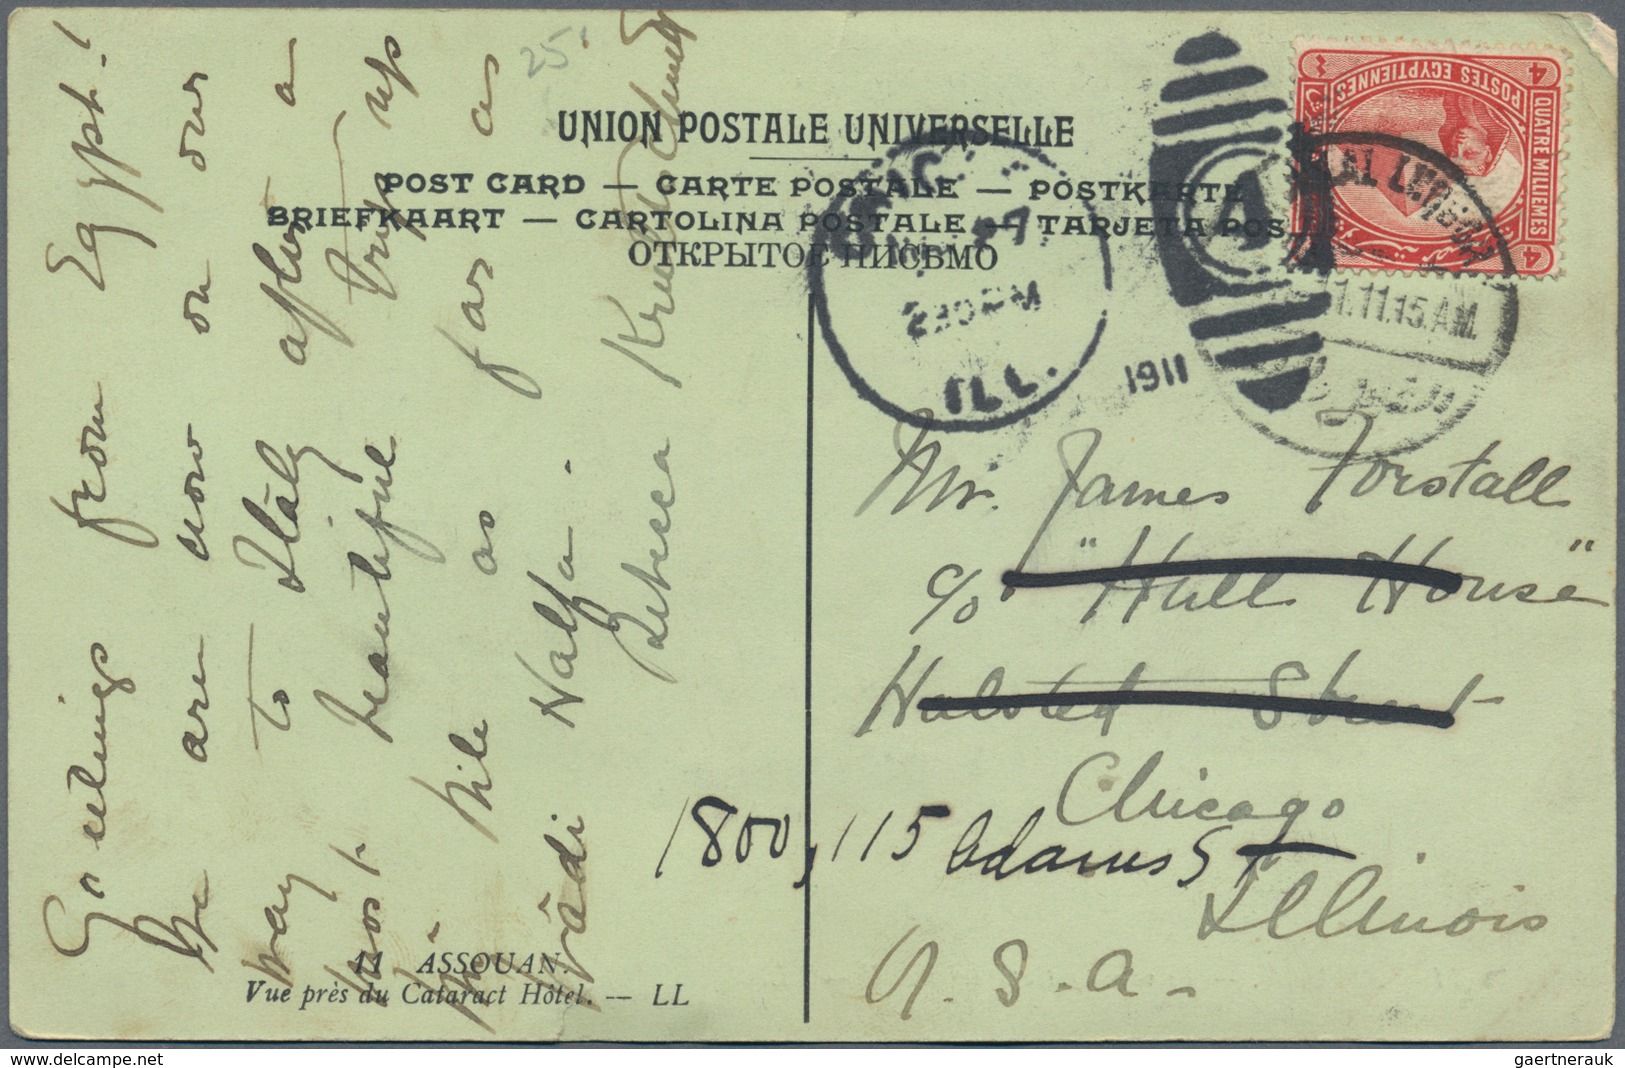 25.
UNION POSTALE UNIVERSELLE
POST CARD — CARTE POSTALE — POSTKARTE
BRIEFKAART — CARTOLINA POSTALE — TARJETA POS
ОТКРЫТОЕ ПИСЬМО
4 QUATRE MILLIEMES 4
POSTES EGYPTIENNES
230 PM
ILL.
1911
1
LUXOR
11.15.AM
Greetings from Egypt!
We are now on our
way to Italy after a
most beautiful trip up
Nile as far as
Wādi Halfa.
Rebecca
Mr. James Forstall
c/o "Hull House"
Halsted Street
Chicago
1800, 115 Adams St
Illinois
U.S.A.
11 ASSOUAN.
Vue près du Cataract Hôtel. — LL
gaertnerauk
http://www.delcampe.net